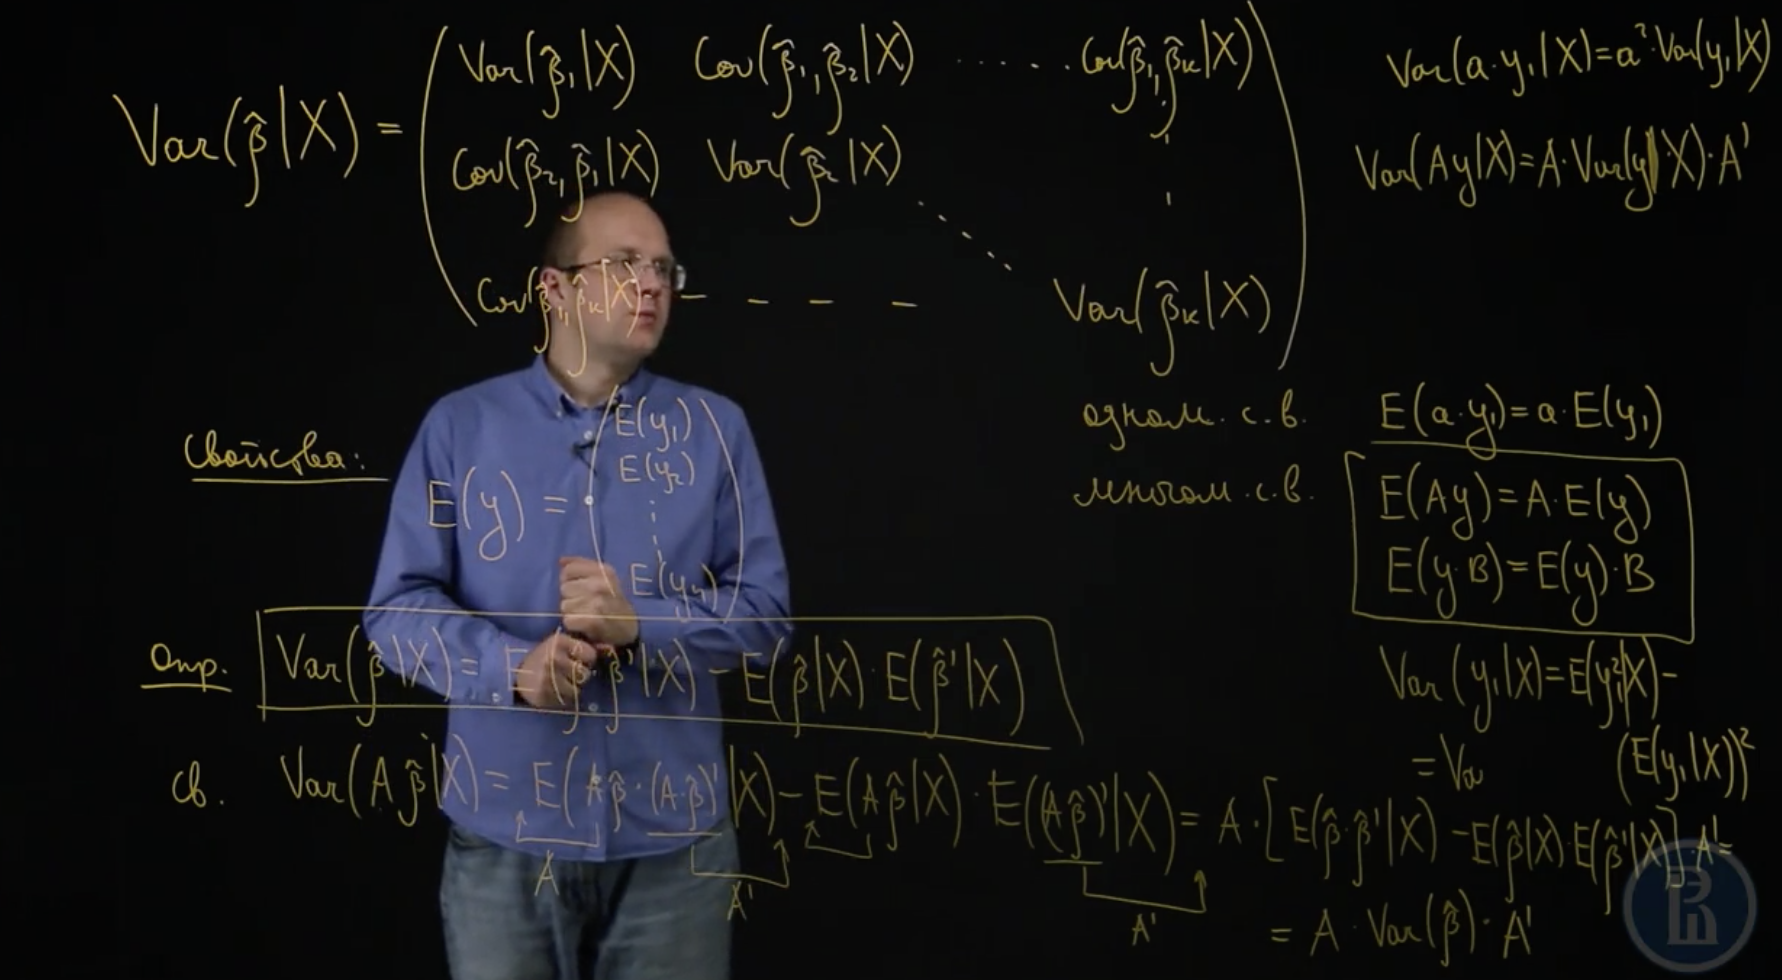 Var(β̂|X) = ( Var(β̂₁|X) Cov(β̂₁,β̂₂|X) ..... Cov(β̂₁,β̂ₖ|X)
Cov(β̂₂,β̂₁|X) Var(β̂₂|X)
Cov(β̂₁,β̂ₖ|X) – – – – Var(β̂ₖ|X) )
Var(a·y₁|X)=a²·Var(y₁|X)
Var(Ay|X)=A·Var(y|X)·A'
Свойства:
E(y) = ( E(y₁)
E(y₂)
⋮
E(yₙ) )
одном. с.в. E(a·y₁)=a·E(y₁)
многом. с.в. E(Ay)=A·E(y)
E(y·B)=E(y)·B
Опр. Var(β̂|X) = E(β̂·β̂'|X) – E(β̂|X)·E(β̂'|X)
Var(y₁|X)=E(y₁²|X)–
= Va (E(y₁|X))²
Св. Var(Aβ̂|X) = E(Aβ̂·(A·β̂)'|X) – E(Aβ̂|X)·E((Aβ̂)'|X) = A·[E(β̂·β̂'|X) – E(β̂|X)·E(β̂'|X)]·A' =
A A' A'
= A·Var(β̂)·A'